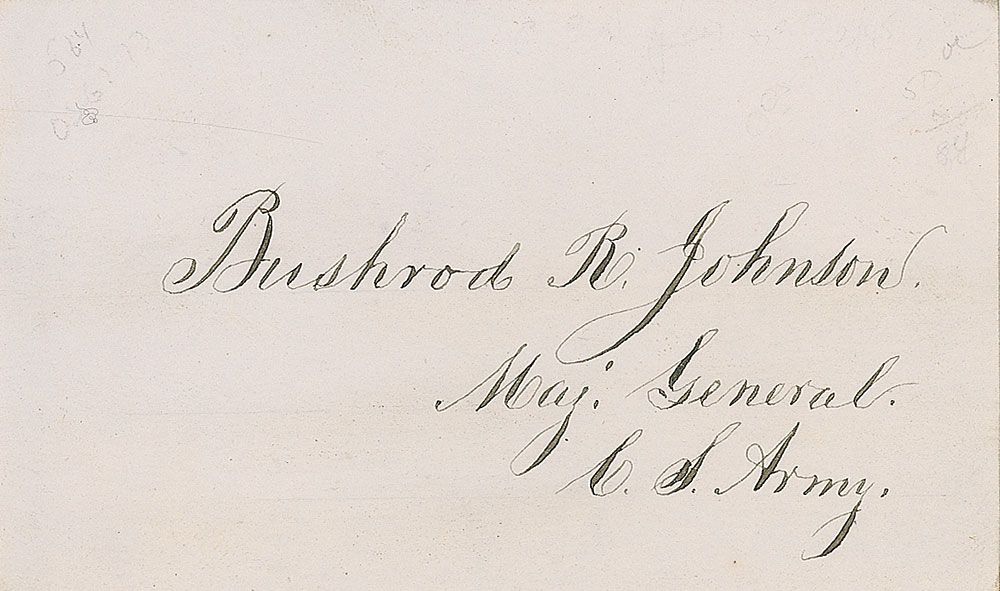 Bushrod R. Johnson.
Maj. General.
C. S. Army.